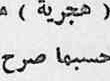 ( هجرية )
حسبما صرح